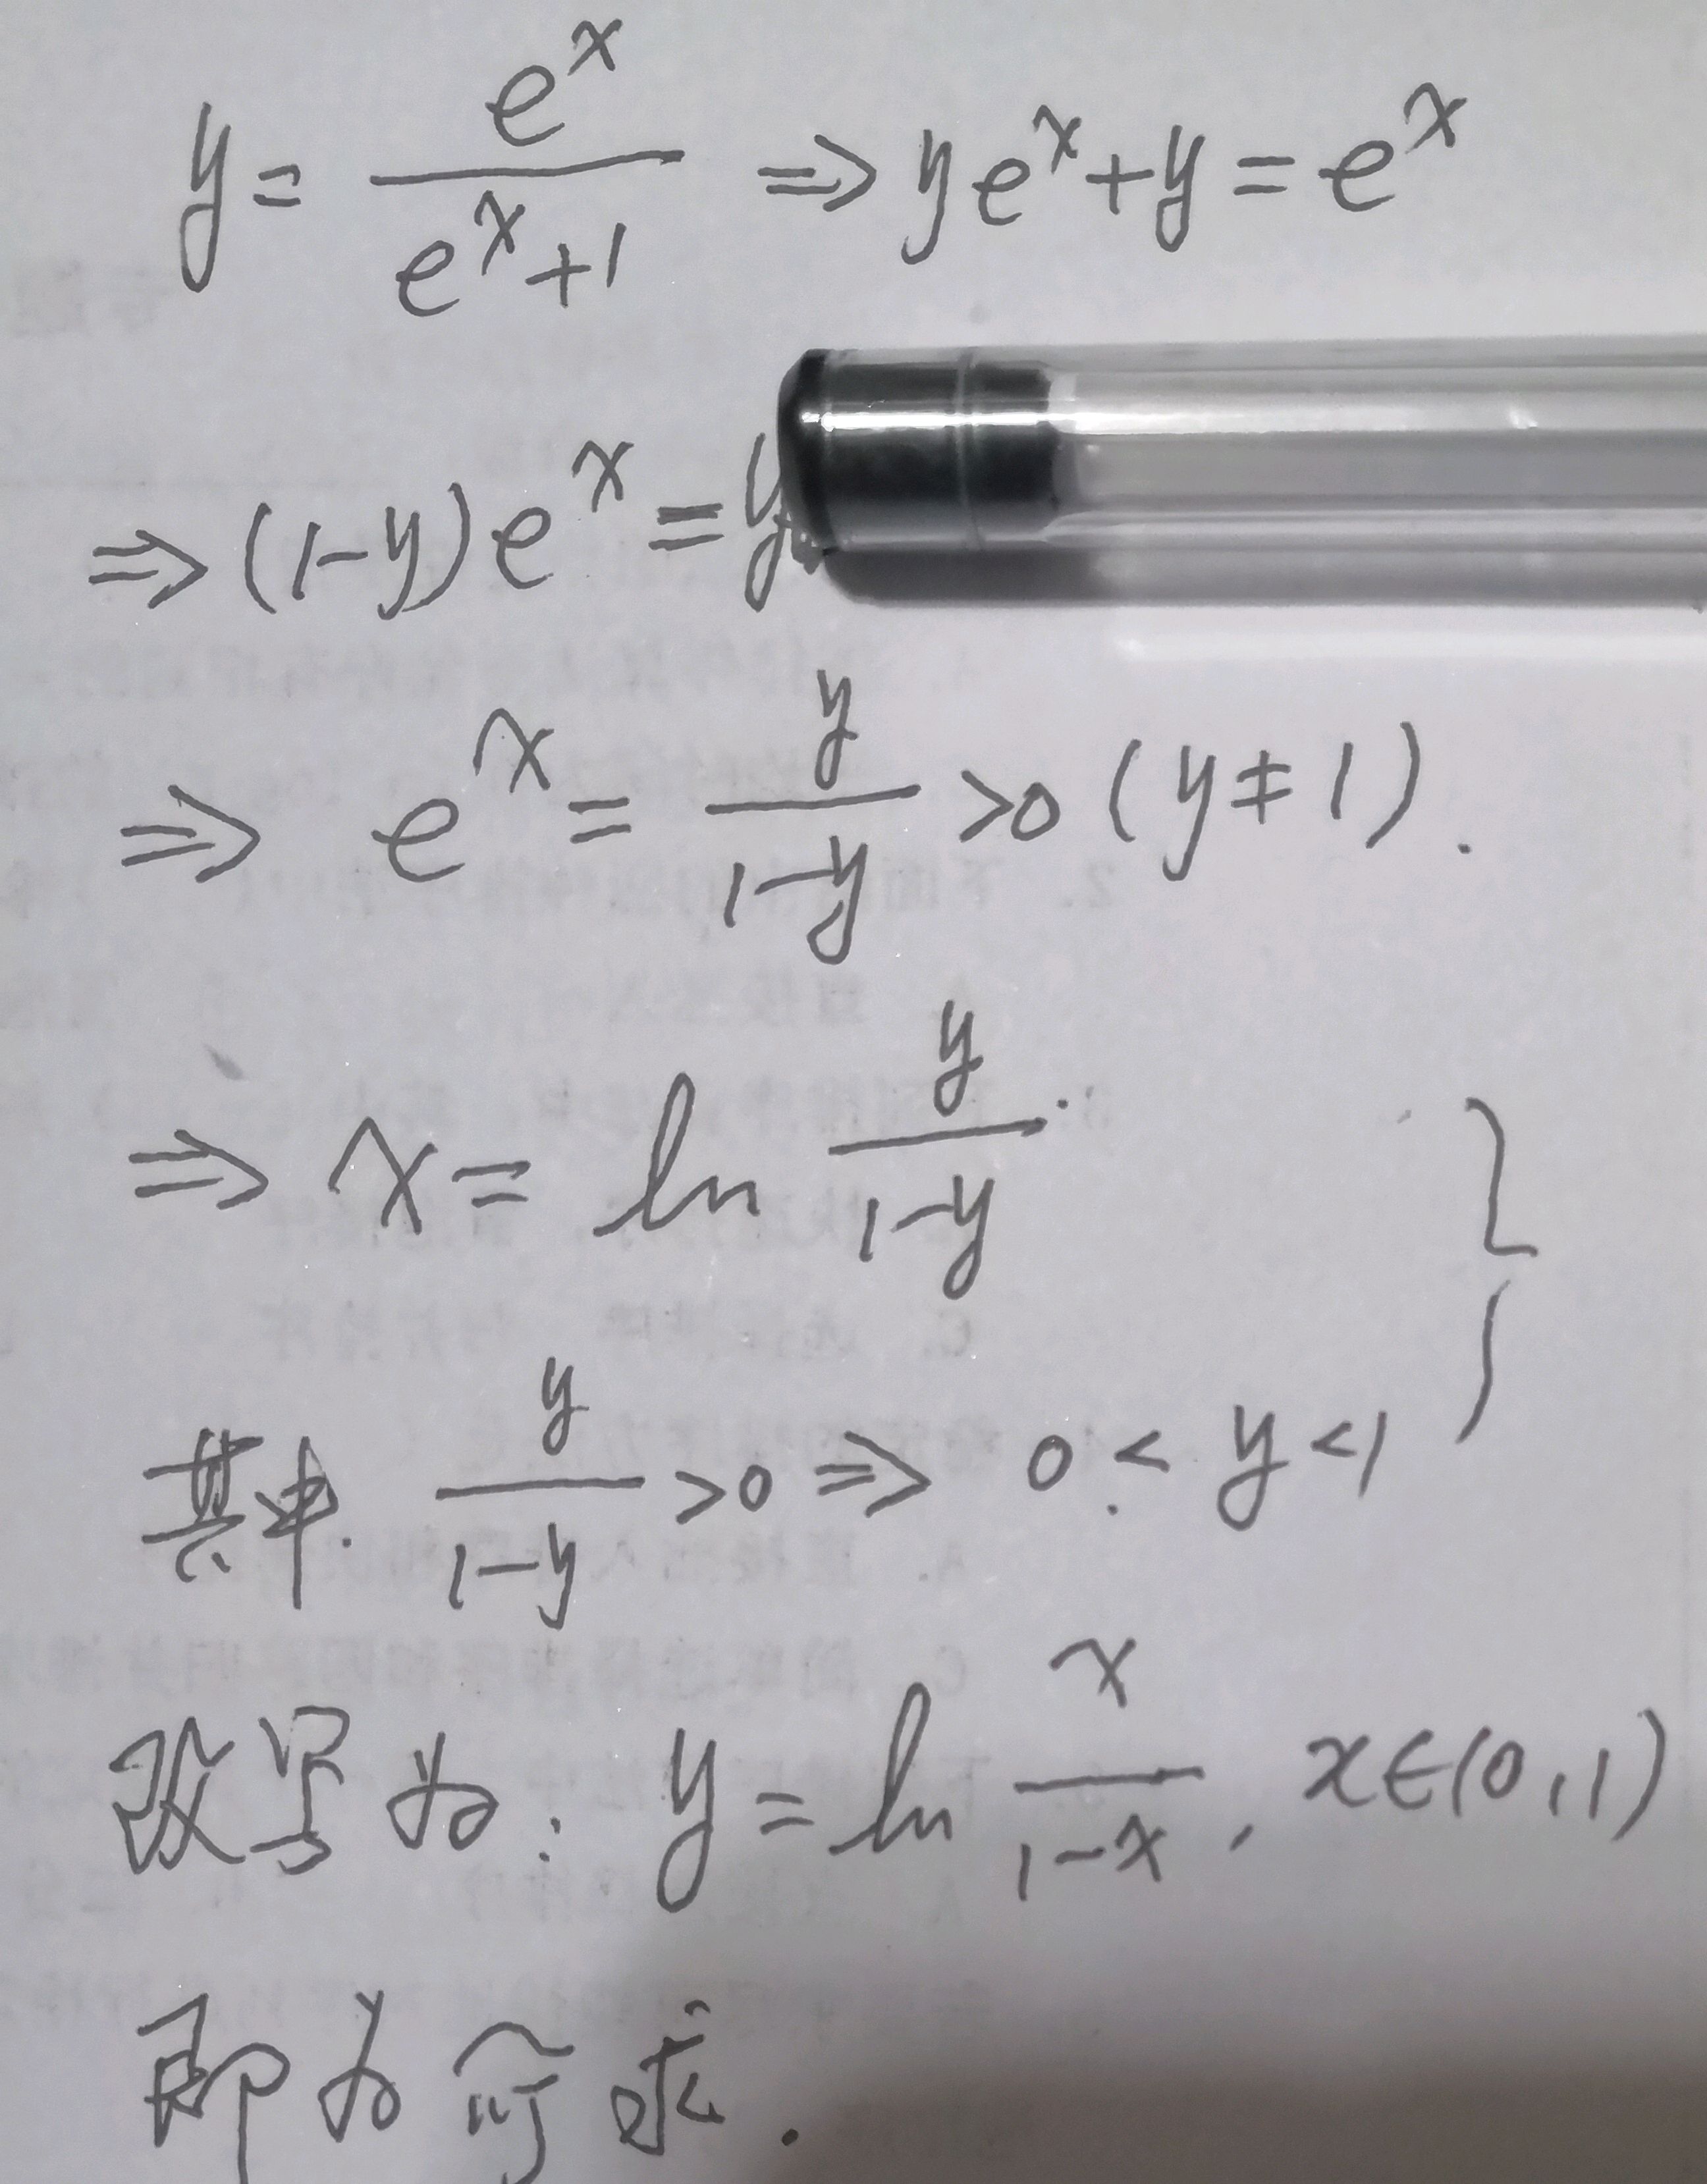 y = e^x / (e^x + 1) ⇒ ye^x + y = e^x
⇒ (1-y)e^x = y
⇒ e^x = y / (1-y) > 0 (y ≠ 1).
⇒ x = ln y / (1-y)
其中 y / (1-y) > 0 ⇒ 0 < y < 1
改写为: y = ln x / (1-x), x∈(0,1)
即为所求.